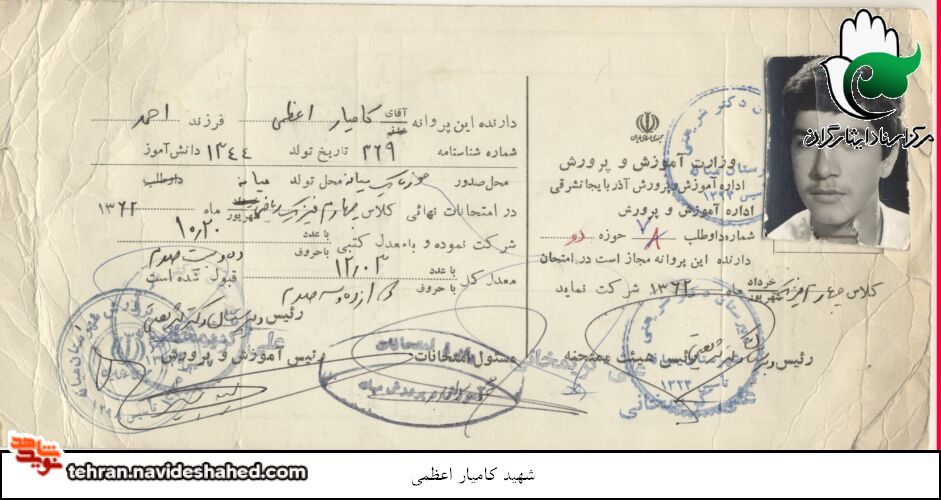 مرکز اسناد ایثارگران
جمهوری اسلامی ایران
وزارت آموزش و پرورش
اداره آموزش و پرورش آذربایجانشرقی
اداره آموزش و پرورش
شماره داوطلب ۷۸ حوزه دو
دارنده این پروانه مجاز است در امتحان
کلاس چهارم فیزیک خرداد شهریور ماه ۱۳۶۲ شرکت نماید
رئیس هیئت ممتحنه
دارنده این پروانه آقای خانم کامیار اعظمی فرزند احمد
شماره شناسنامه ۳۶۹ تاریخ تولد ۱۳۴۴ دانش‌آموز
محل صدور حوزه یک میانه محل تولد میانه داوطلب
در امتحانات نهائی کلاس چهارم فیزیک ریاضی شهریور ماه ۱۳۶۲
شرکت نموده و با معدل کتبی با عدد با حروف ۱۰/۲۰ ده و بیست صدم
معدل کل با عدد با حروف ۱۲/۰۳ دوازده و سه صدم قبول شده است
رئیس آموزش و پرورش
مسئول امتحانات
شهید کامیار اعظمی
نوید شاهد
tehran.navideshahed.com